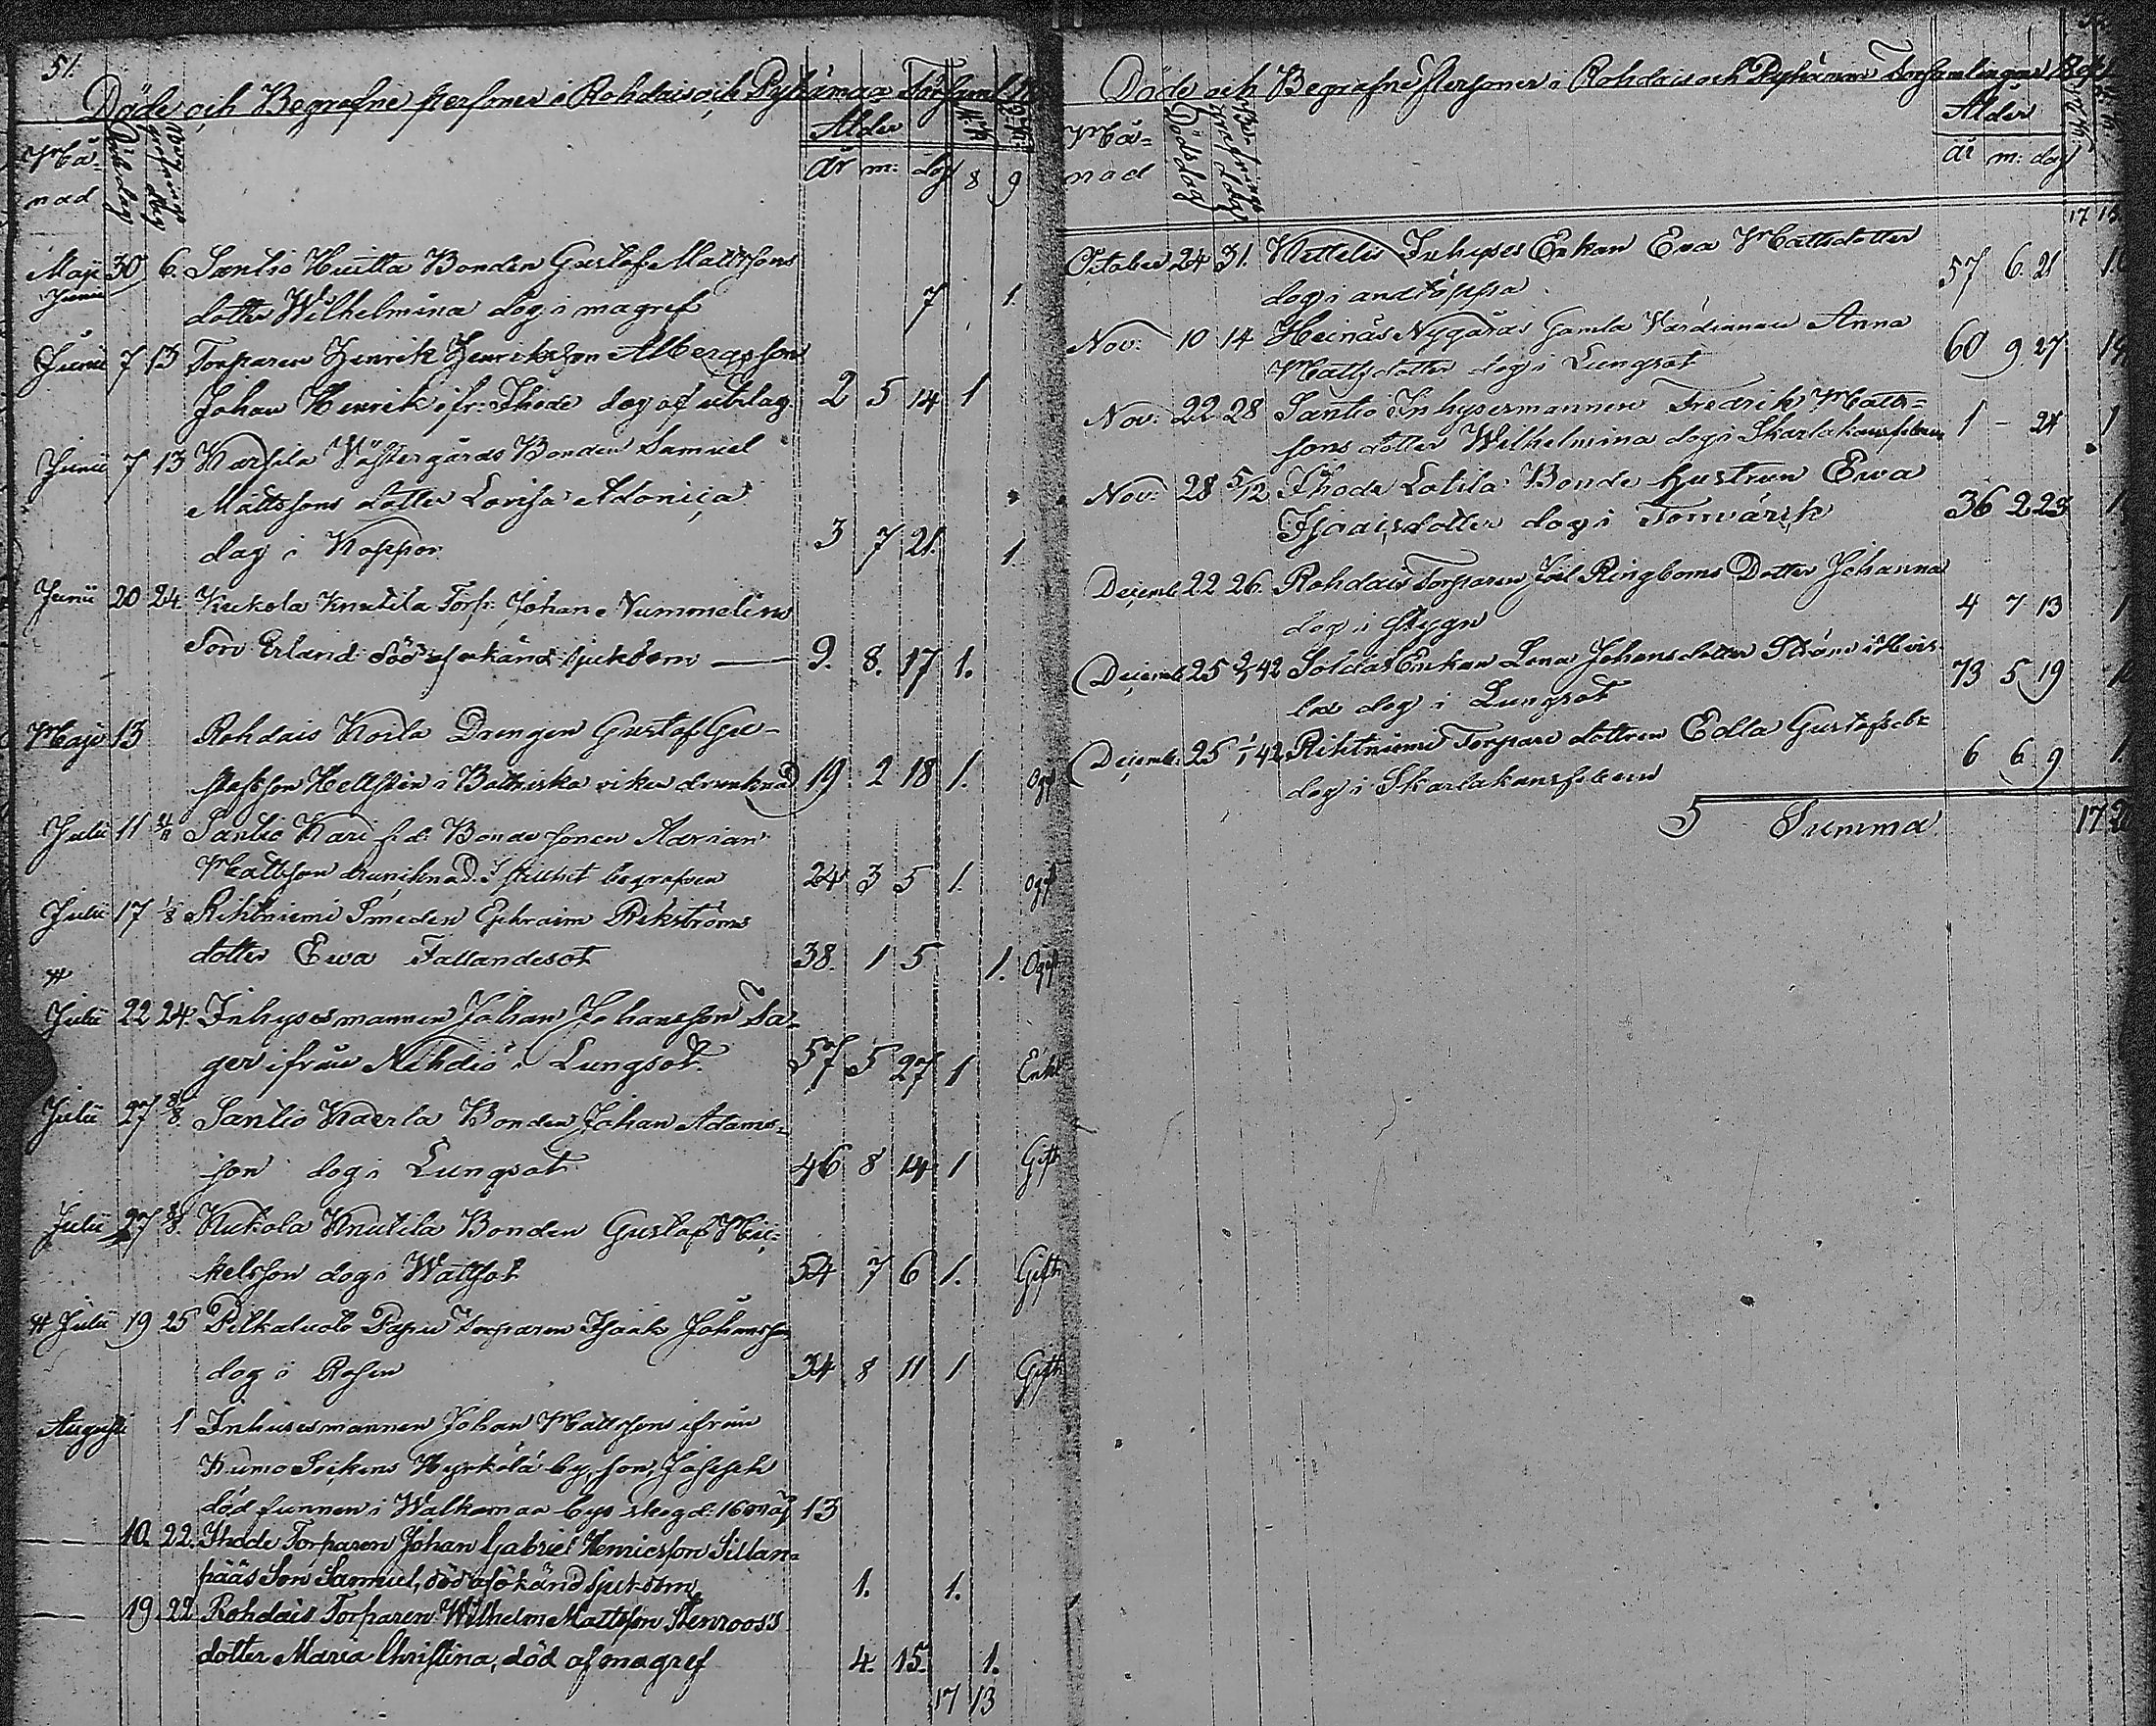 51.
Döde och Begrafne personer i Rohdais och Pyhämaa Församl
Må=
nad
Dödsdag
Begrafnings dag
Ålder
år m: dag 8 9
Maji 30 6. Santio Huitta Bonden Gustaf Mattssons
Junii
dotter Wilhelmina dog i magref 7 1
Junii 7 13 Torparen Henrik Henriksson Albergs son
Johan Henrik ifr: Ihode dog af utslag. 2 5 14 1
Junii 7 13 Warhila Västergårds Bonden Samuel
Mattssons dotter Lovisa Adonica
dog i Koppor 3 7 21. 1.
Junii 20 24. Kukola Knutila Torp: Johan Nummelins
Son Erland död af okänd sjukdom 9. 8. 17 1.
Maji 13 Rohdais Koila Drengen Gustaf Gu-
stafsson Hellsten i Bottniska viken drunknad 19 2 18 1. Ogf
Julii 11 Santio Kari f.d. Bonde sonen Adrian
Mattsson drunknad. I stillhet begrafven 24 3 5 1. Ogf
Julii 17 1/8 Rihtniemi Smeden Ephraim Rekströms
dotter Ewa Fallandesot 38. 1 5 1. Ogf
Julii 22 24. Inhysesmannen Johan Johansson Sa-
ger ifrån Nihdiö i Lungsot. 57 5 27 1 Enkl
Julii 27 8/8. Santio Kaerla Bonden Johan Adams-
son dog i Lungsot 46 8 14 1 Gift
Julii 27 8/8. Kukola Knutila Bonden Gustaf Mic=
kelsson dog i Wattsot 54 7 6 1. Gift
# Julii 19 25 Pitkaluoto Papu torparen Isaak Johansson
dog i Rosen 34 8 11 1 Gift
Augusti 1 Inhusesmannen Johan Mattssons ifrån
Kumo Sockens Kyrkölä by, son, Joseph
död funnen i Walkamaa bys skog d: 16 Maj 13
— 10. 22. Ihode Torparen Johan Gabriel Henricsson Sillan=
pääs Son Samuel, död af okänd sjukdom, 1. 1.
— 19 22 Rohdais Torparen Wilhelm Mattsson Stenroos's
dotter Maria Christina, död af magref 4. 15. 1.
17 13
Döde och Begrafne personer i Rohdais och Pyhämaa Församlingar
Må=
nad
Dödsdag
Begrafnings dag
Ålder
år m: dag
17 13
October 24 31. Inhyses Enkan Eva Mattsdotter
dog i andtäppa 57 6 21
Nov: 10 14 Heinäs Nygårds Gamla Värdinnan Anna
Mattsdotter dog i Lungsot 60 9. 27
Nov: 22 28 Santio Inhysesmannen Fredrik Matts=
sons dotter Wilhelmina dog i Skarlakansfebern 1 - 24 1
Nov: 28 5/12 Ihode Lotila Bonde hustrun Ewa
Isaaksdotter dog i Torrvärk 36 2 23 1
Decemb: 22 26. Rohdais Torparen Joel Ringboms Dotter Johanna
dog i Stygn 4 7 13 1
Decemb: 25 2/1 42 Soldat Enkan Lena Johansdotter Ström i Hirs-
lax dog i Lungsot 73 5 19
Decemb: 25 1/1 42 Rihtniemi Torpare dottren Edla Gustafsdr
dog i Skarlakansfebern 6 6 9 1
Summa 17 20